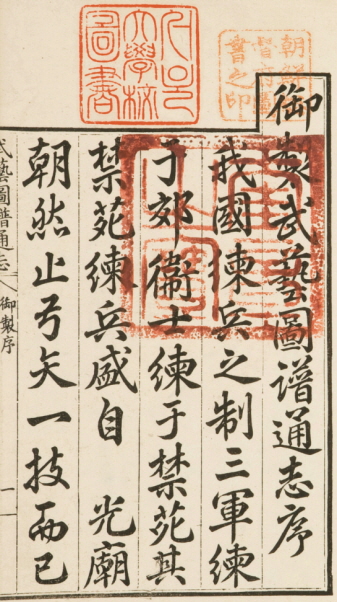 朝鮮總
督府圖
書之印
서울
大學校
圖書
御製武藝圖譜通志序
我國練兵之制三軍練
于郊衞士練于禁苑其
禁苑練兵盛自 光廟
朝然止弓矢一技而已
藝圖譜通志
御製序
一